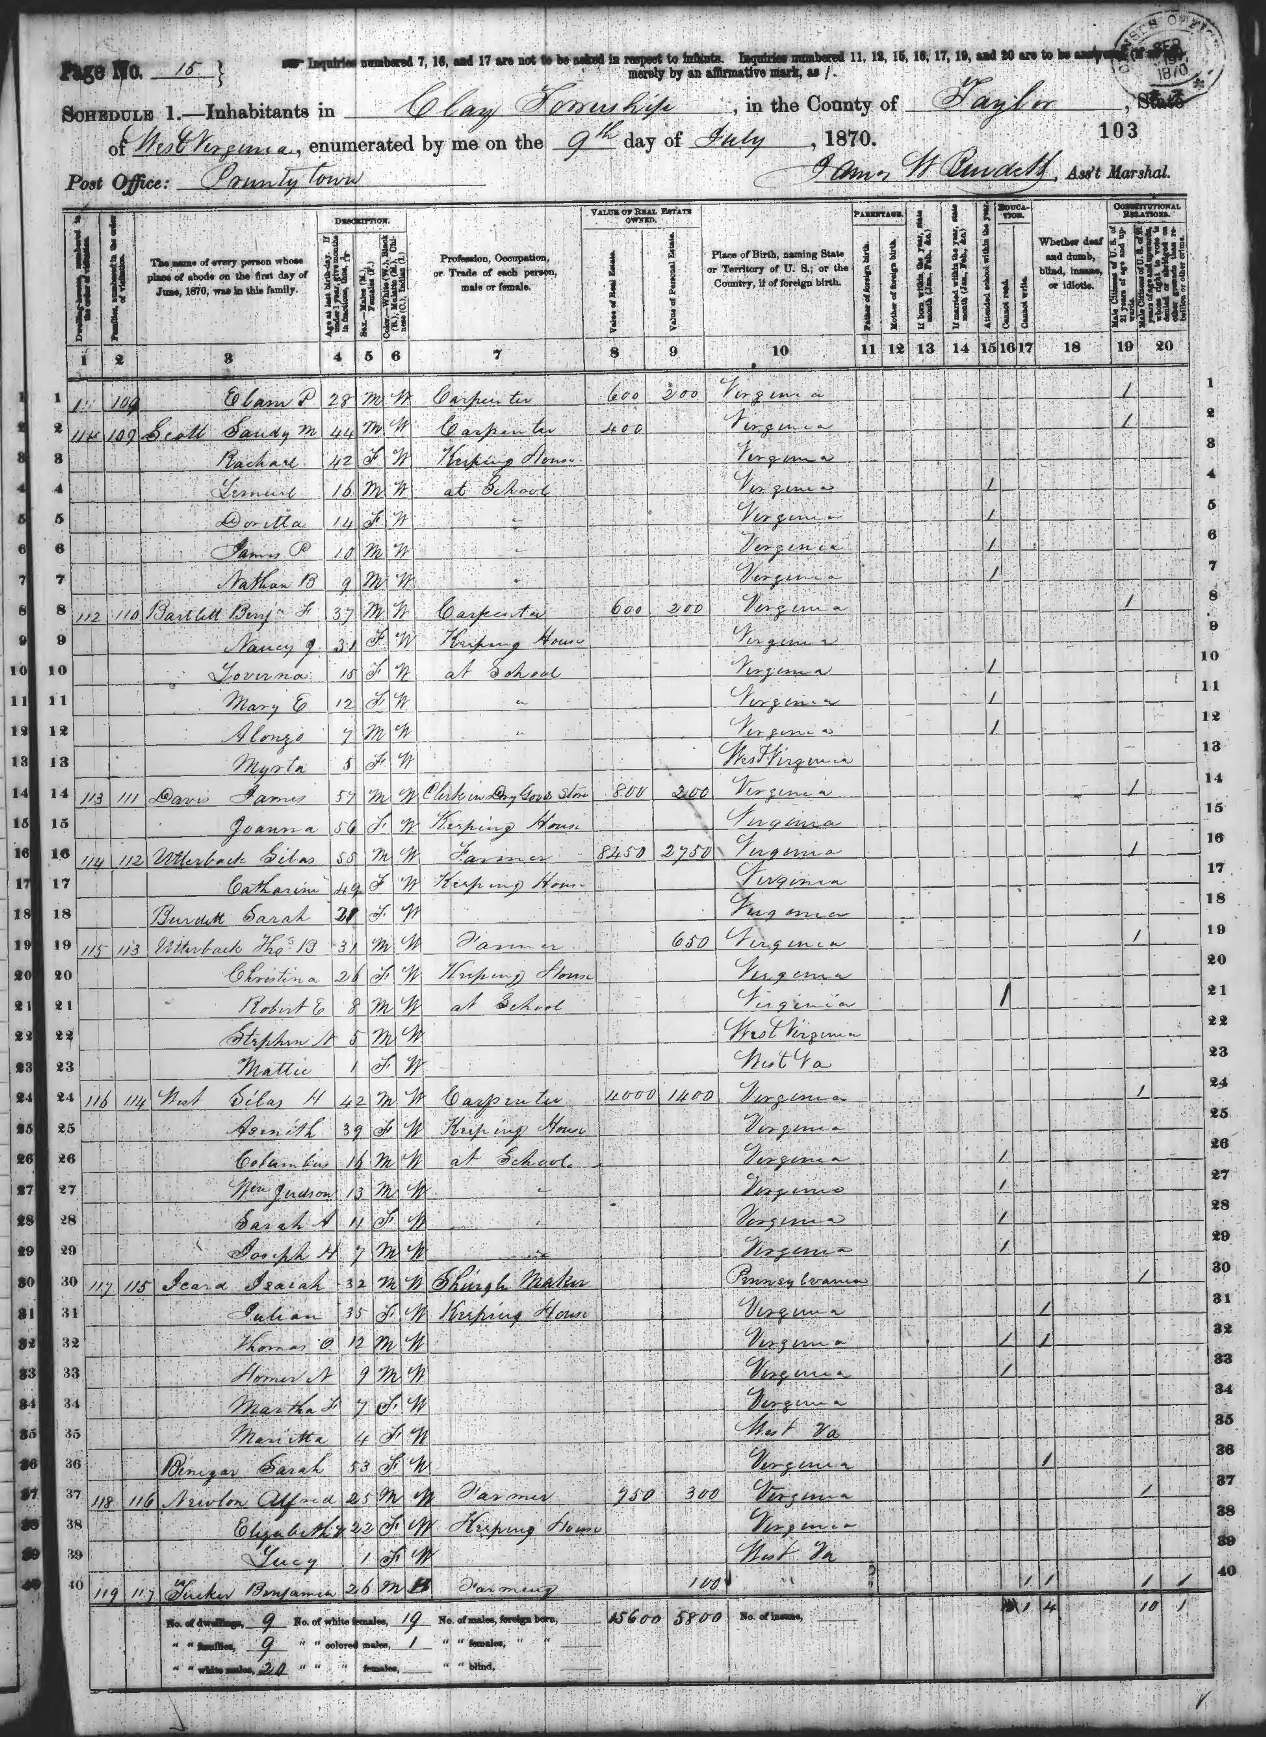 Page No. 15
Inquiries numbered 7, 16, and 17 are not to be asked in respect to infants. Inquiries numbered 11, 12, 15, 16, 17, 19, and 20 are to be answered
merely by an affirmative mark, as /.
SCHEDULE 1.—Inhabitants in Clay Township, in the County of Taylor, State
103
of West Virginia, enumerated by me on the 9th day of July, 1870.
Post Office: Prunty town James W Burdett, Ass't Marshal.
Dwelling-houses, numbered in the order of visitation.
Families, numbered in the order of visitation.
The name of every person whose place of abode on the first day of June, 1870, was in this family.
DESCRIPTION.
Age at last birth-day. If under 1 year, give months in fractions, thus,
Sex.—Males (M.), Females (F.)
Color.—White (W.), Black (B.), Mulatto (M.), Chinese (C.), Indian (I.)
Profession, Occupation, or Trade of each person, male or female.
VALUE OF REAL ESTATE OWNED.
Value of Real Estate.
Value of Personal Estate.
Place of Birth, naming State or Territory of U. S.; or the Country, if of foreign birth.
PARENTAGE.
Father of foreign birth.
Mother of foreign birth.
If born within the year, state month (Jan., Feb., &c.)
If married within the year, state month (Jan., Feb., &c.)
EDUCATION.
Attended school within the year.
Cannot read.
Cannot write.
Whether deaf and dumb, blind, insane, or idiotic.
CONSTITUTIONAL RELATIONS.
Male Citizens of U. S. of 21 years of age and upwards.
Male Citizens of U. S. of 21 years of age and upwards, whose right to vote is denied or abridged on other grounds than rebellion or other crime.
1 2 3 4 5 6 7 8 9 10 11 12 13 14 15 16 17 18 19 20
1 1 109 Elam P 28 M W Carpenter 600 200 Virginia 1 1
2 2 109 Scott Sandy M 44 M W Carpenter 400 Virginia 1 2
3 3 Rachael 42 F W Keeping House Virginia 3
4 4 Lemuel 16 M W at School Virginia 1 4
5 5 Doretta 14 F W " Virginia 1 5
6 6 James P 10 M W " Virginia 1 6
7 7 Nathan B 9 M W " Virginia 1 7
8 8 112 110 Bartlett Benjn F 37 M W Carpenter 600 200 Virginia 1 8
9 9 Nancy J 31 F W Keeping House Virginia 9
10 10 Loverna 15 F W at School Virginia 1 10
11 11 Mary E 12 F W " Virginia 1 11
12 12 Alonzo 7 M W " Virginia 1 12
13 13 Myrta 5 F W West Virginia 13
14 14 113 111 Davis James 57 M W Clerk in Dry Goods Store 800 200 Virginia 1 14
15 15 Joanna 56 F W Keeping House Virginia 15
16 16 114 112 Utterback Silas 55 M W Farmer 8450 2750 Virginia 1 16
17 17 Catharine 49 F W Keeping House Virginia 17
18 18 Burdett Sarah 21 F W Virginia 18
19 19 115 113 Utterback Thos B 31 M W Farmer 650 Virginia 1 19
20 20 Christina 26 F W Keeping House Virginia 20
21 21 Robert E 8 M W at School Virginia 1 21
22 22 Stephen N 5 M W West Virginia 22
23 23 Mattie 1 F W West Va 23
24 24 116 114 West Silas H 42 M W Carpenter 4000 1400 Virginia 1 24
25 25 Asenith 39 F W Keeping House Virginia 25
26 26 Columbus 16 M W at School Virginia 1 26
27 27 Wm Judson 13 M W " Virginia 1 27
28 28 Sarah A 11 F W " Virginia 1 28
29 29 Joseph H 7 M W " Virginia 1 29
30 30 117 115 Icard Isaiah 32 M W Shingle Maker Pennsylvania 1 30
31 31 Julian 35 F W Keeping House Virginia 1 31
32 32 Thomas O 12 M W Virginia 1 1 32
33 33 Homer N 9 M W Virginia 1 33
34 34 Martha F 7 F W Virginia 34
35 35 Marietta 4 F W West Va 35
36 36 Sarah 53 F W Virginia 1 36
37 37 118 116 Newlon Alfred 25 M W Farmer 750 300 Virginia 1 37
38 38 Elizabeth 22 F W Keeping House Virginia 38
39 39 Lucy 1 F W West Va 39
40 40 119 117 Tucker Benjamin 26 M B Farming 100 " 1 1 1 1 40
No. of dwellings, 9 No. of white females, 19 No. of males, foreign born, 15600 5800 No. of insane, 1 4 10 1
" " families, 9 " " colored males, 1 " " females, " "
" " white males, 20 " " " females, " " blind,